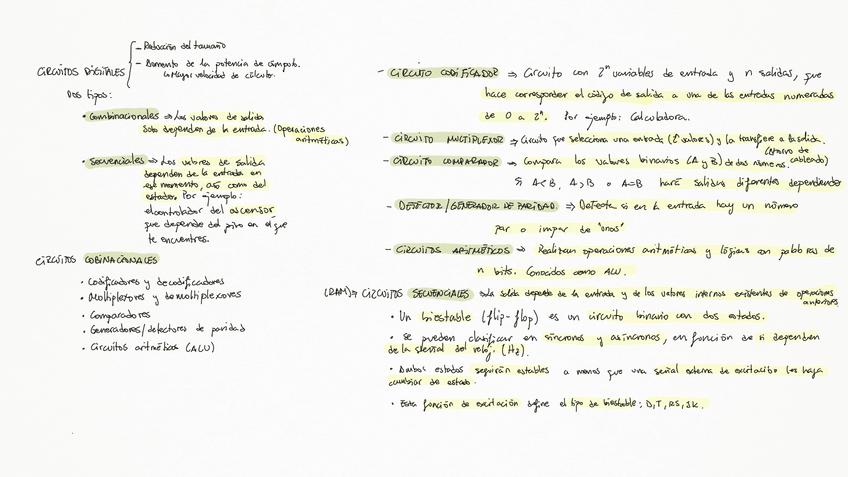 CIRCUITOS DIGITALES
- Reducción del tamaño
- Aumento de la potencia de cómputo.
↳ Mayor velocidad de cálculo.
Dos tipos:
• Combinacionales ⇒ Los valores de salida
solo dependen de la entrada. (Operaciones
aritméticas)
• Secuenciales ⇒ Los valores de salida
dependen de la entrada en
ese momento, así como del
estado. Por ejemplo:
el controlador del ascensor
que depende del piso en el que
te encuentres.
CIRCUITOS COBINACIONALES
• Codificadores y decodificadores
• Multiplexores y demultiplexores
• Comparadores
• Generadores/detectores de paridad
• Circuitos aritméticos (ALU)
- CIRCUITO CODIFICADOR ⇒ Circuito con 2ⁿ variables de entrada y n salidas, que
hace corresponder el código de salida a una de las entradas numeradas
de 0 a 2ⁿ. Por ejemplo: Calculadora.
- CIRCUITO MULTIPLEXOR ⇒ Circuito que selecciona una entrada (2ⁿ valores) y la transfiere a la salida.
- CIRCUITO COMPARADOR ⇒ Compara los valores binarios (A y B) de dos números. cableado)
Si A<B, A>B o A=B hará salidas diferentes dependiendo
- DETECTOR/GENERADOR DE PARIDAD ⇒ Detecta si en la entrada hay un número
par o impar de "unos"
- CIRCUITOS ARITMÉTICOS ⇒ Realizan operaciones aritméticas y lógicas con palabras de
n bits. Conocidos como ALU.
(RAM)⇒ CIRCUITOS SECUENCIALES ⇒ La salida depende de la entrada y de los valores internos existentes de operaciones
anteriores
• Un biestable (flip-flop) es un circuito binario con dos estados.
• Se pueden clasificar en síncronos y asíncronos, en función de si dependen
de la señal del reloj. (Hz).
• Ambos estados seguirán estables a menos que una señal externa de excitación los haga
cambiar de estado.
• Esta función de excitación define el tipo de biestable: D, T, RS, JK.